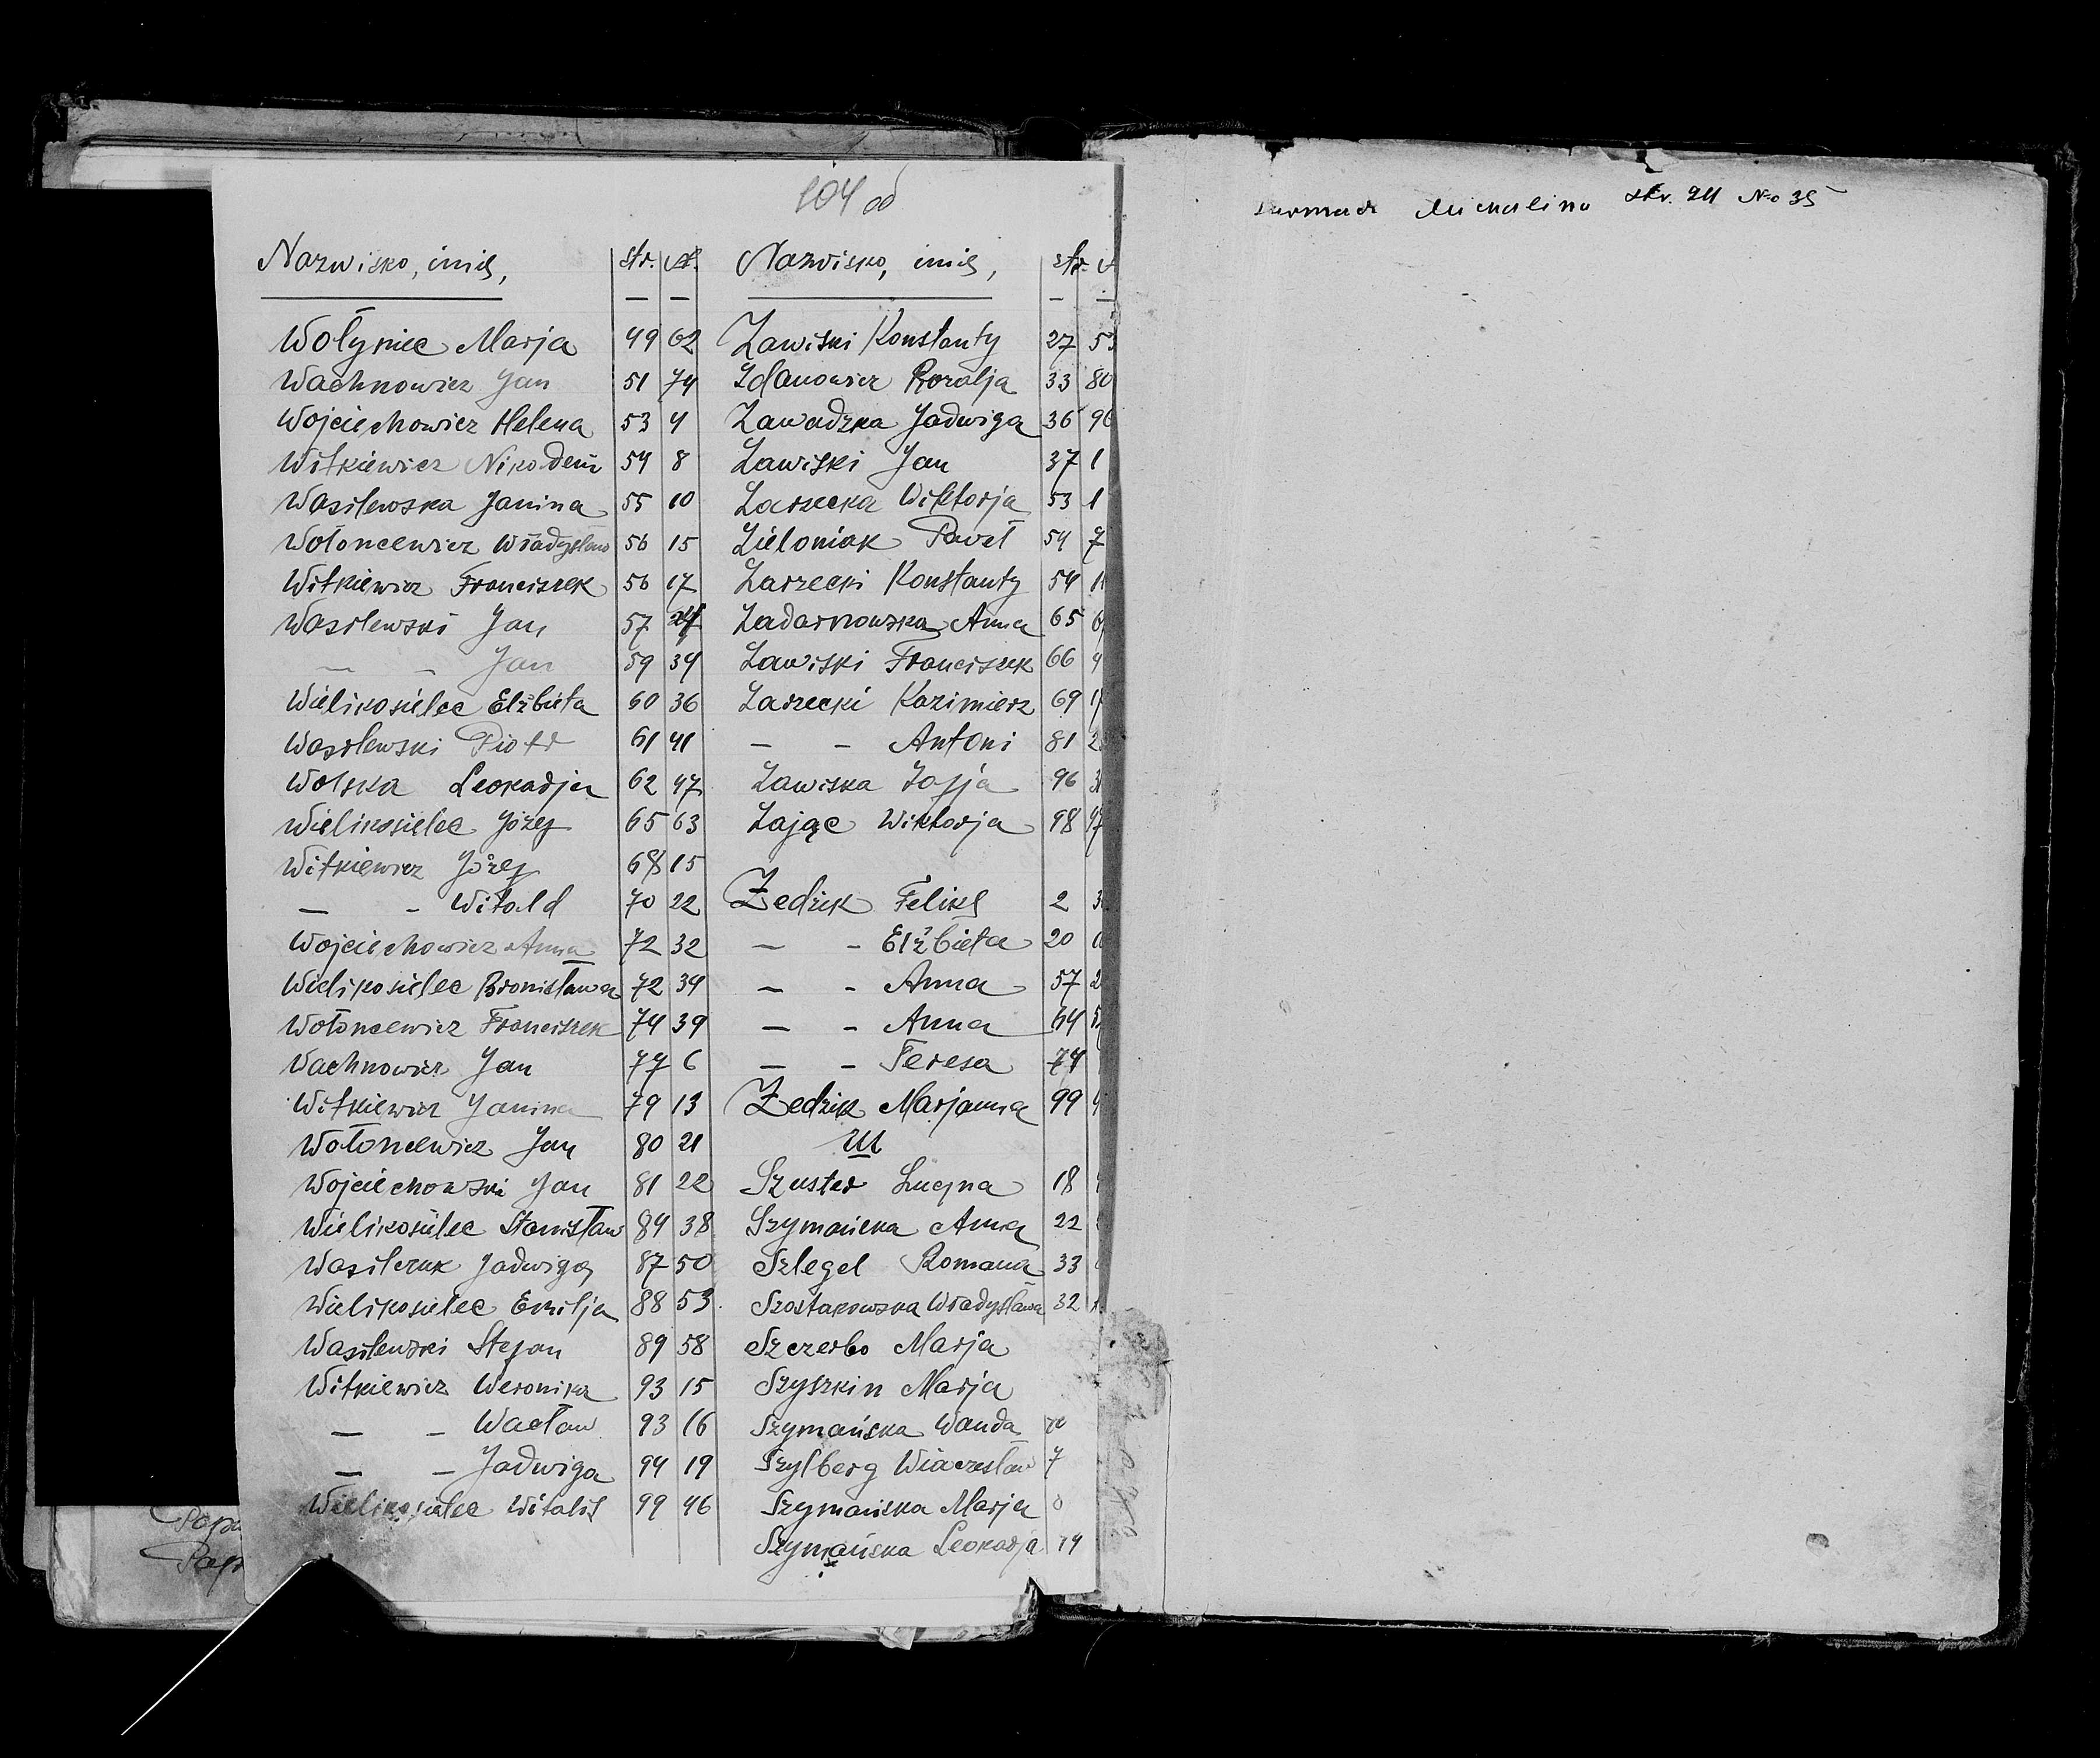 104 od
Nazwisko, imię, str. №.
Wołyniec Marja 49 62
Wachnowicz Jan 51 74
Wojciechowicz Helena 53 4
Witkiewicz Nikodem 54 8
Wasilewska Janina 55 10
Wołoncewicz Władysław 56 15
Witkiewicz Franciszek 56 17
Wasilewski Jan 57 24
— - Jan 59 34
Wielikosielec Elżbieta 60 36
Wasilewski Piotr 61 41
Wolska Leokadja 62 47
Wielikosielec Józef 65 63
Witkiewicz Józef 68 15
— - Witold 70 22
Wojciechowicz Anna 72 32
Wielikosielec Bronisława 72 34
Wołoncewicz Franciszek 74 39
Wachnowicz Jan 77 6
Witkiewicz Janina 79 13
Wołoncewicz Jan 80 21
Wojciechowski Jan 81 22
Wielikosielec Stanisław 84 38
Wasilczuk Jadwiga 87 50
Wielikosielec Emilja 88 53
Wasilewski Stefan 89 58
Witkiewicz Weronika 93 15
— - Wacław 93 16
— - Jadwiga 94 19
Wielikosielec Witalis 99 46
Nazwisko, imię, str.
Zawiski Konstanty 27 53
Zdanowicz Rozalja 33 80
Zawadzka Jadwiga 36 96
Zawiski Jan 37 1
Zarzecka Wiktorja 53 1
Zieloniak Paweł 54 7
Zarzecki Konstanty 54 11
Zadarnowska Anna 65
Zawiski Franciszek 66
Zarzecki Kazimierz 69
— - Antoni 81
Zawiska Zofja 96
Zając Wiktorja 98
Żedzik Feliks 2
— - Elżbieta 20
— - Anna 57
— - Anna 64
— - Teresa 74
Żedzik Marjanna 99
Ш
Szuster Lucyna 18
Szymańska Anna 22
Szlegel Romana 33
Szostakowska Władysława 32
Szczerbo Marja
Szyszkin Marja
Szymańska Wanda
Szylberg Wiaczesław 7
Szymańska Marja
Szymańska Leokadja 74
Michalina str. 94 No 35